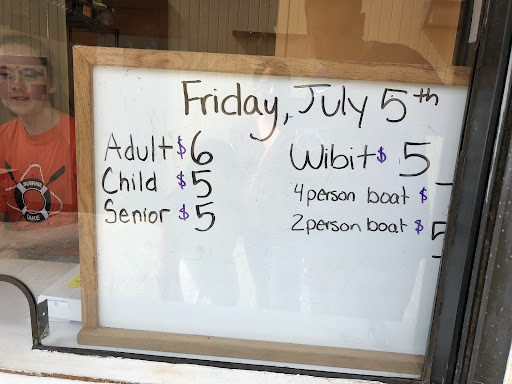 Friday, July 5th
Adult $6
Child $5
Senior $5
Wibit $ 5
4 person boat $
2 person boat $ 5